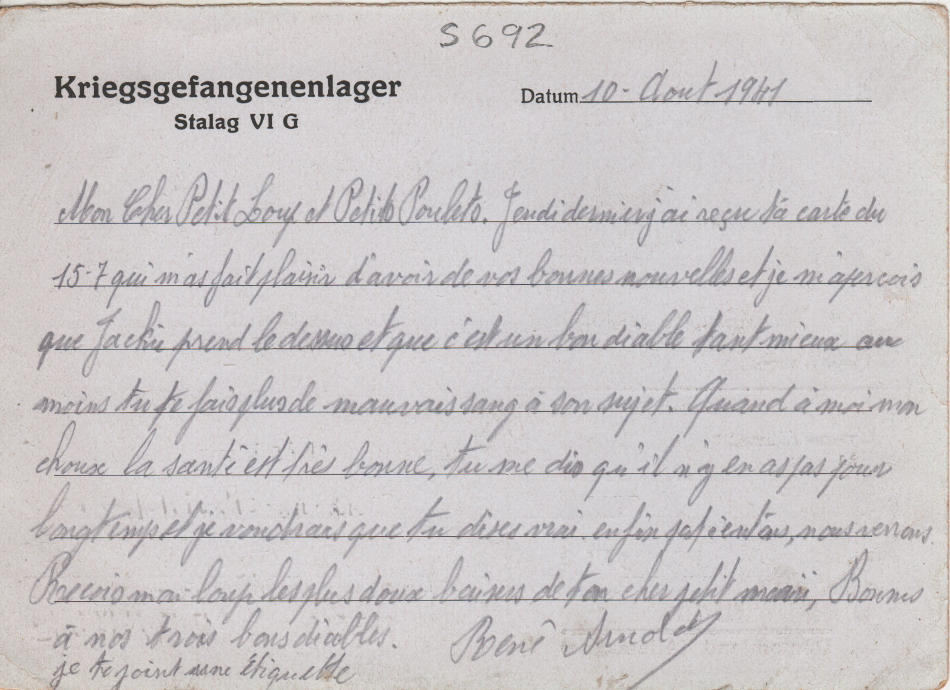 S 692
Kriegsgefangenenlager
Stalag VI G
Datum 10 - Aout 1941
Mon Cher Petit Loup et Petits Poulets. Jeudi dernier j'ai reçu ta carte du
15-7 qui m'as fait plaisir d'avoir de vos bonnes nouvelles et je m'aperçois
que Jackie prend le dessus et que c'est un bon diable tant mieux au
moins tu te fais plus de mauvais sang à son sujet. Quand à moi mon
choux la santé est très bonne, tu me dis qu'il n'y en as pas pour
longtemp et je voudrais que tu dises vrai enfin patientons, nous verrons.
Recois mon loup les plus doux baisers de ton cher petit mari, Bonnes
à nos trois bons diables. René
je te joint une étiquette